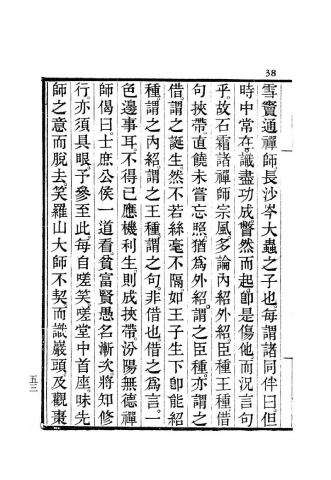 38
雪竇通禪師長沙岑大蟲之子也每謂諸同伴曰但
時中常在識盡功成瞥然而起卽是傷他而況言句
乎故石霜諸禪師宗風多論內紹外紹臣種王種借
句挾帶直饒未嘗忘照猶為外紹謂之臣種亦謂之
借謂之誕生然不若絲毫不隔如王子生下卽能紹
種謂之內紹謂之王種謂之句非借也借之為言一
色邊事耳不得已應機利生則成挾帶汾陽無德禪
師偈曰士庶公侯一道看貧富賢愚名漸次將知修
行亦須具眼予參至此每自嗟笑嗟堂中首座昧先
師之意而脫去笑羅山大師不契而識巖頭及觀棗
五三